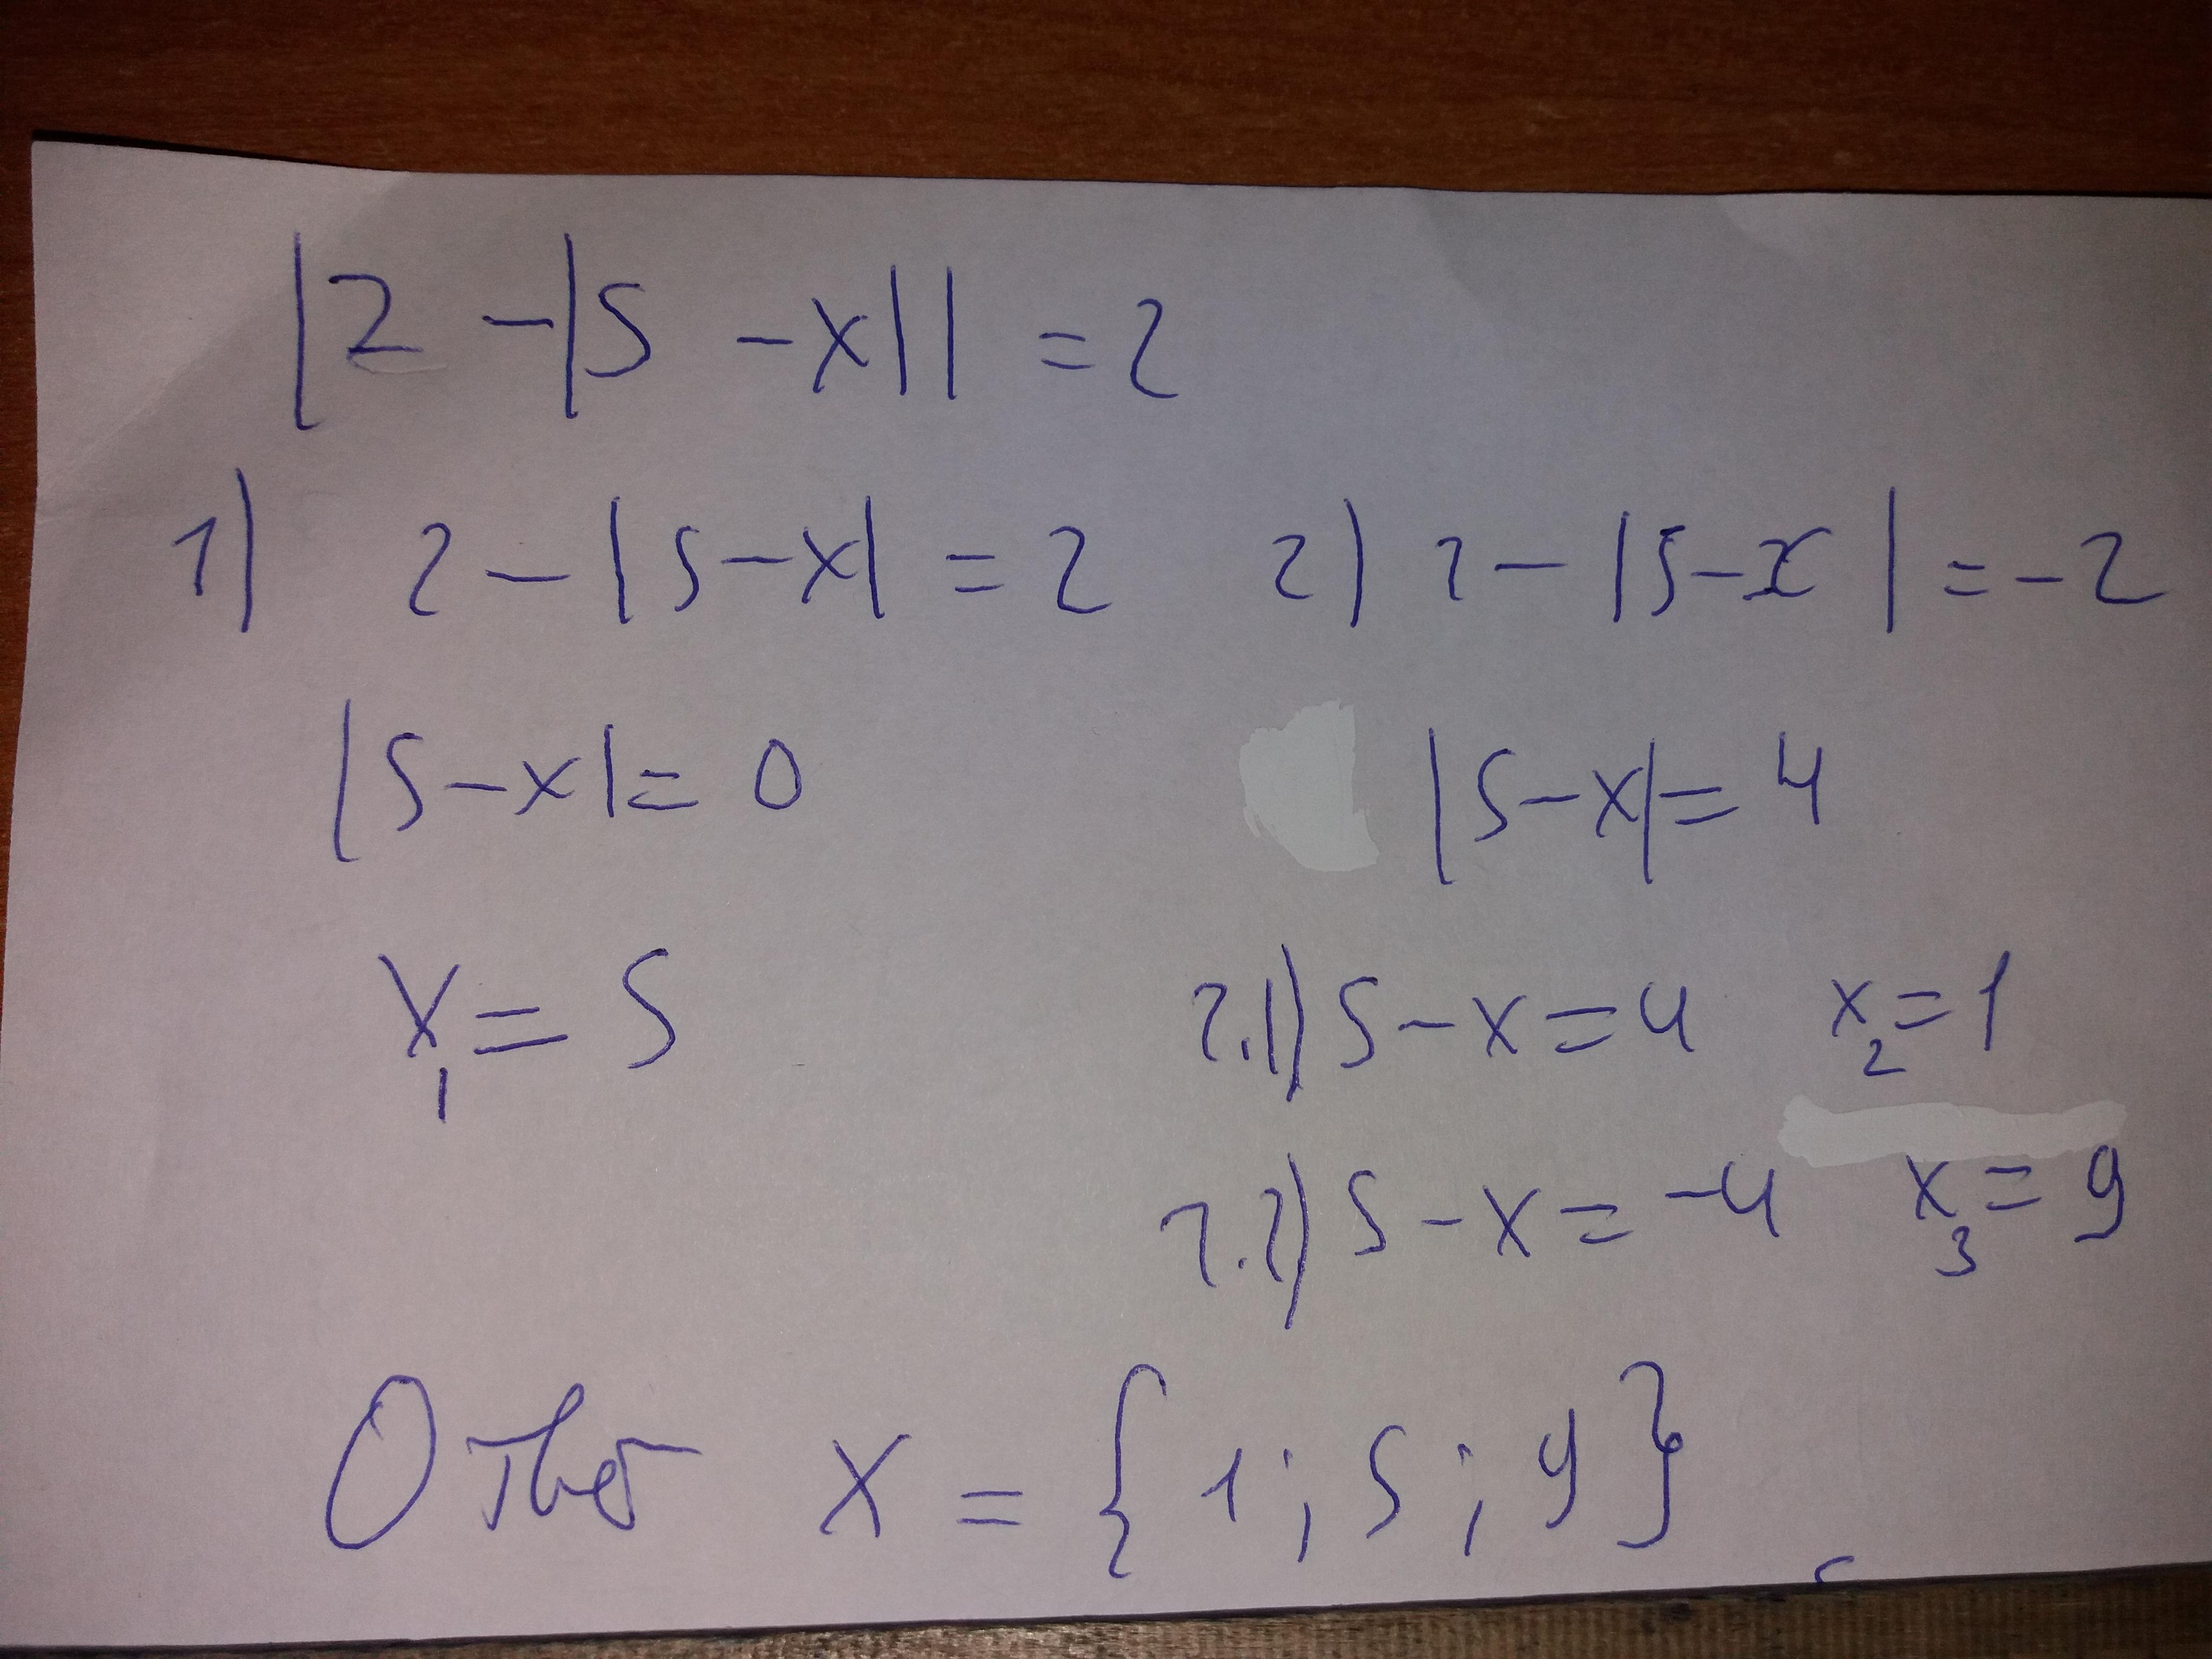 |2 -|5 -x|| =2
1) 2-|5-x|=2 2) 2-|5-x|=-2
|5-x|= 0 |5-x|=4
x₁= 5 2.1) 5-x=4 x₂=1
2.2) 5-x=-4 x₃=9
Ответ x = {1; 5; 9}